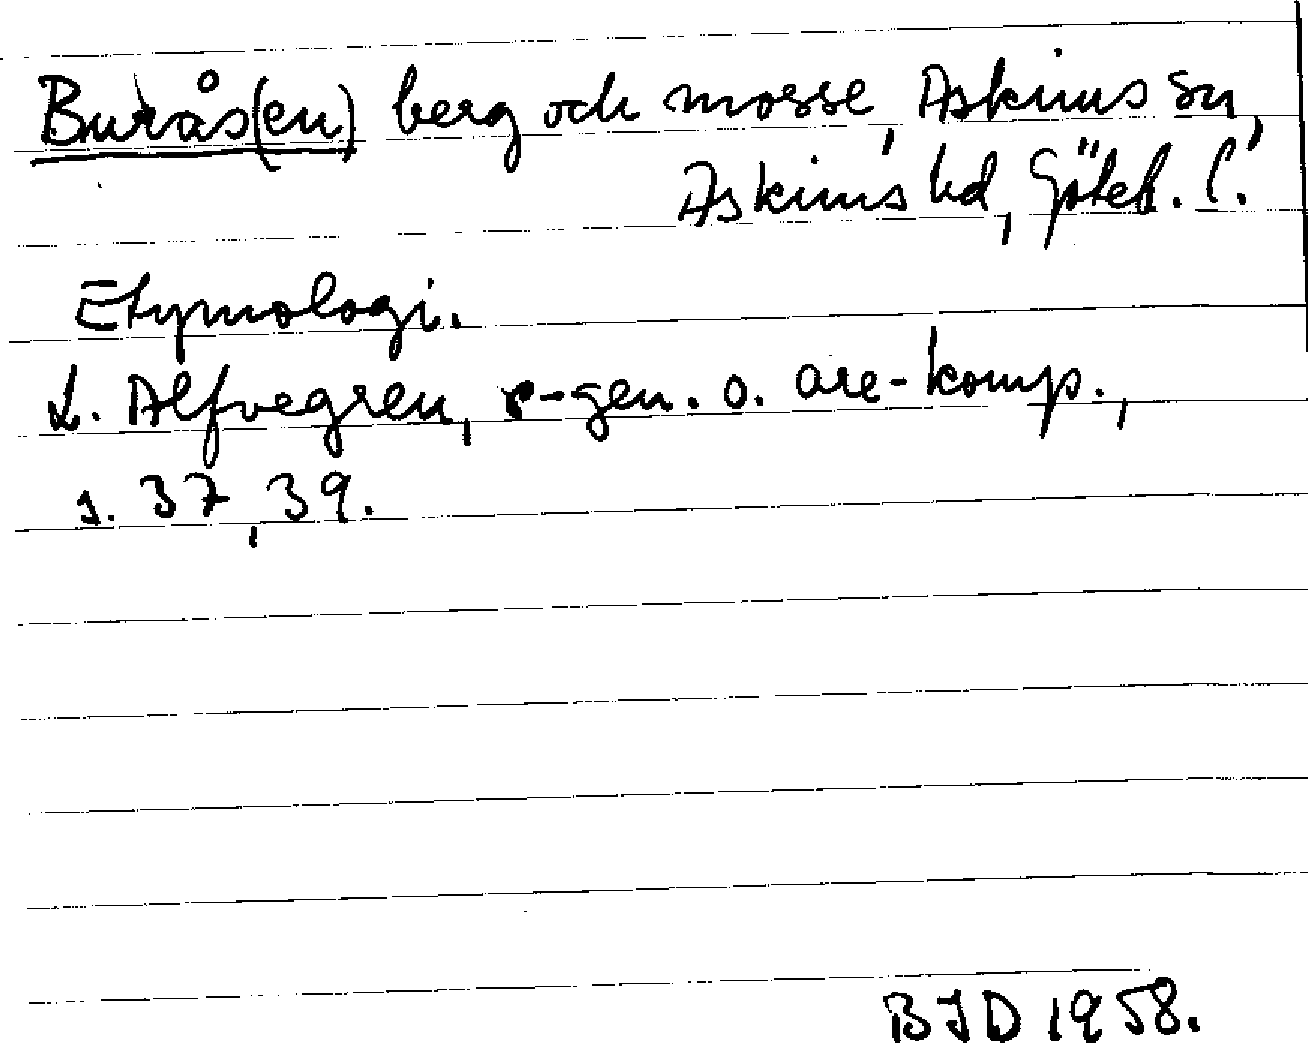 Burås(en) berg och mosse, Askims sn,
Askims hd, Göteb. l.
Etymologi.
L. Alfvegren, r-gen. o. are-komp.,
s. 37, 39.
BJD 1958.